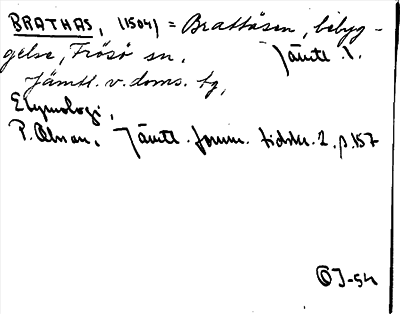 BRATHAS, (1504) = Brattåsen, bebyg-
gelse, Frösö sn, Jämtl. l.
Jämtl. v. doms. tg,
Etymologi,
P. Olsson, Jämtl. fornm. tidskr. 2, p. 157
OJ-54